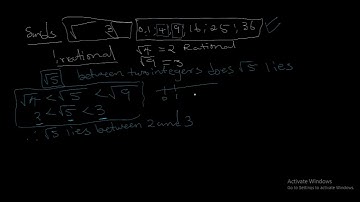 Surds √ 0; 1; 4; 9; 16; 25; 36
Irrational √4 = 2 Rational
√9 = 3
√5 between two integers does √5 lies
√4 < √5 < √9
3 < √5 < 3
0 1
∴ √5 lies between 2 and 3
Activate Windows
Go to Settings to activate Windows.